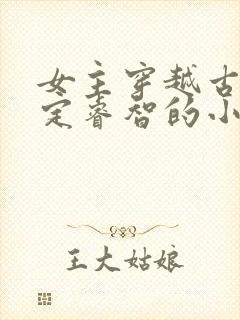 女主穿越古
定睿智的小
王大姑娘